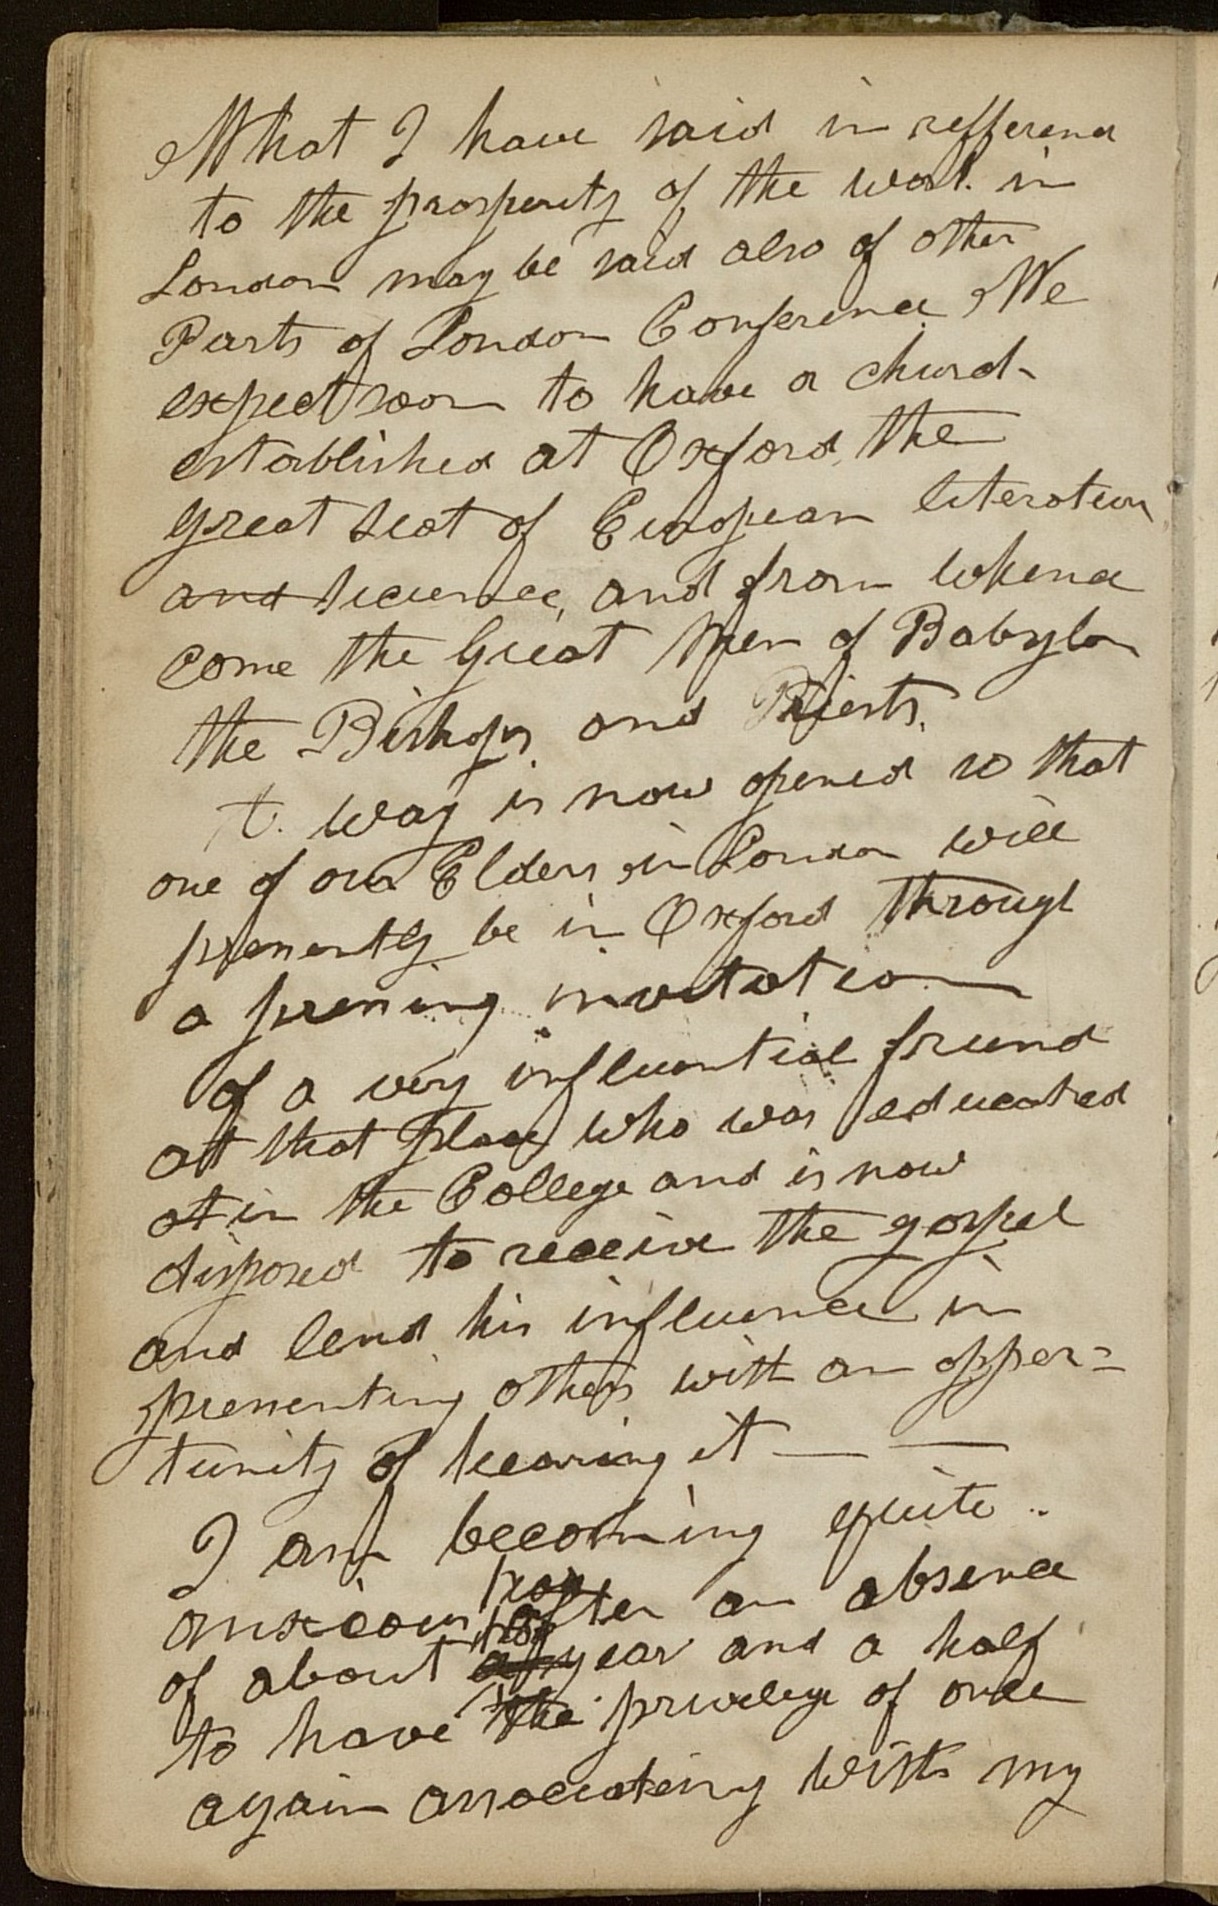 What I have said in refference
to the prosperity of the work in
London may be said also of other
Parts of London Conference We
expect soon to have a church
established at Oxford, the
great seat of European literature
and sicience, and from whence
come the Great Men of Babylon
the Bishops and Priests.
t. way is now opened so that
one of our Elders in London will
presently be in Oxford through
a pressing invitation
of a very influential friend
at that place who was educated
at in the College and is now
disposed to receive the gospel
and lend his influence in
presenting others with an opper=
tunity of hearing it — —
I am becoming quite
anxious after an absence
of about a year and a half
to have the privilege of once
again associating with my